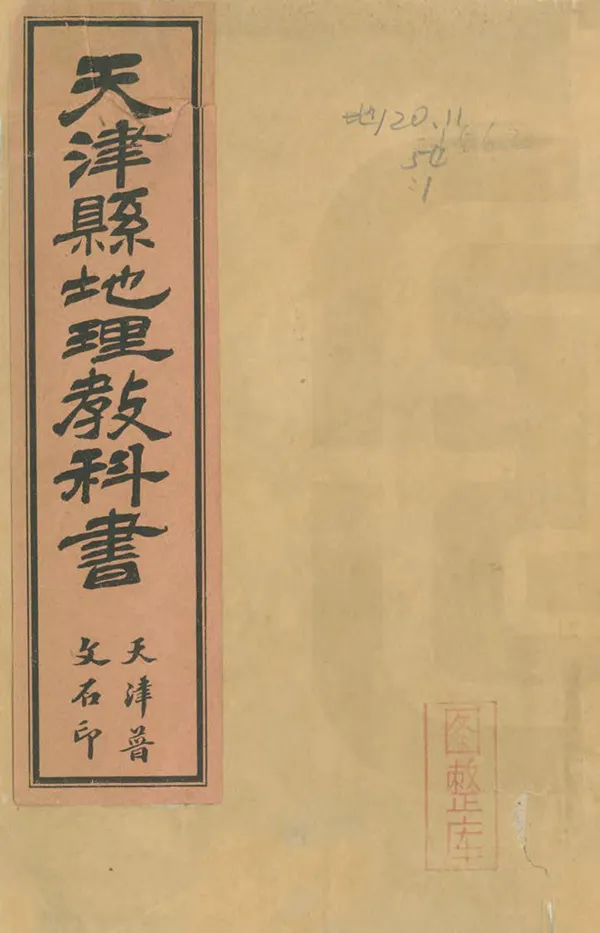 天津縣地理教科書
天津普
文石印
地120.11
54
:1
圖整库